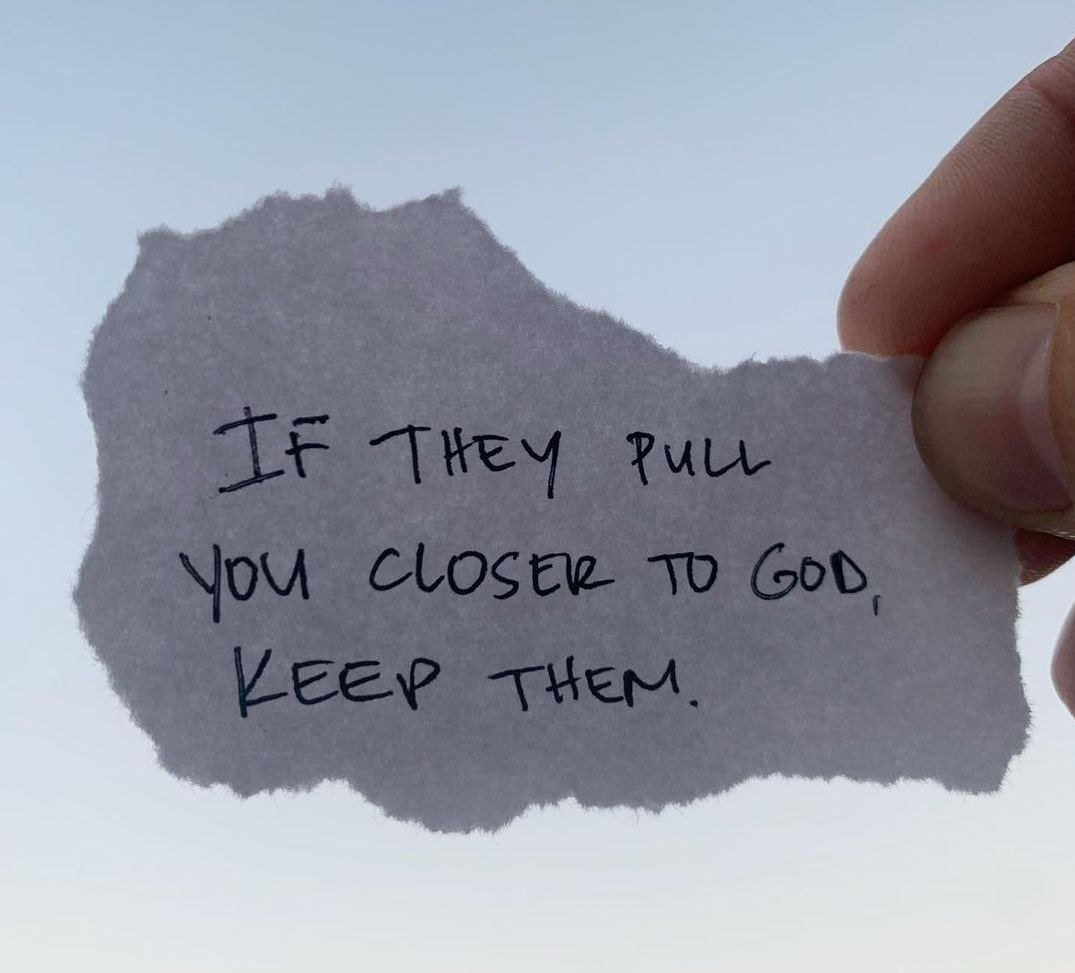 IF THEY PULL
YOU CLOSER TO GOD,
KEEP THEM.